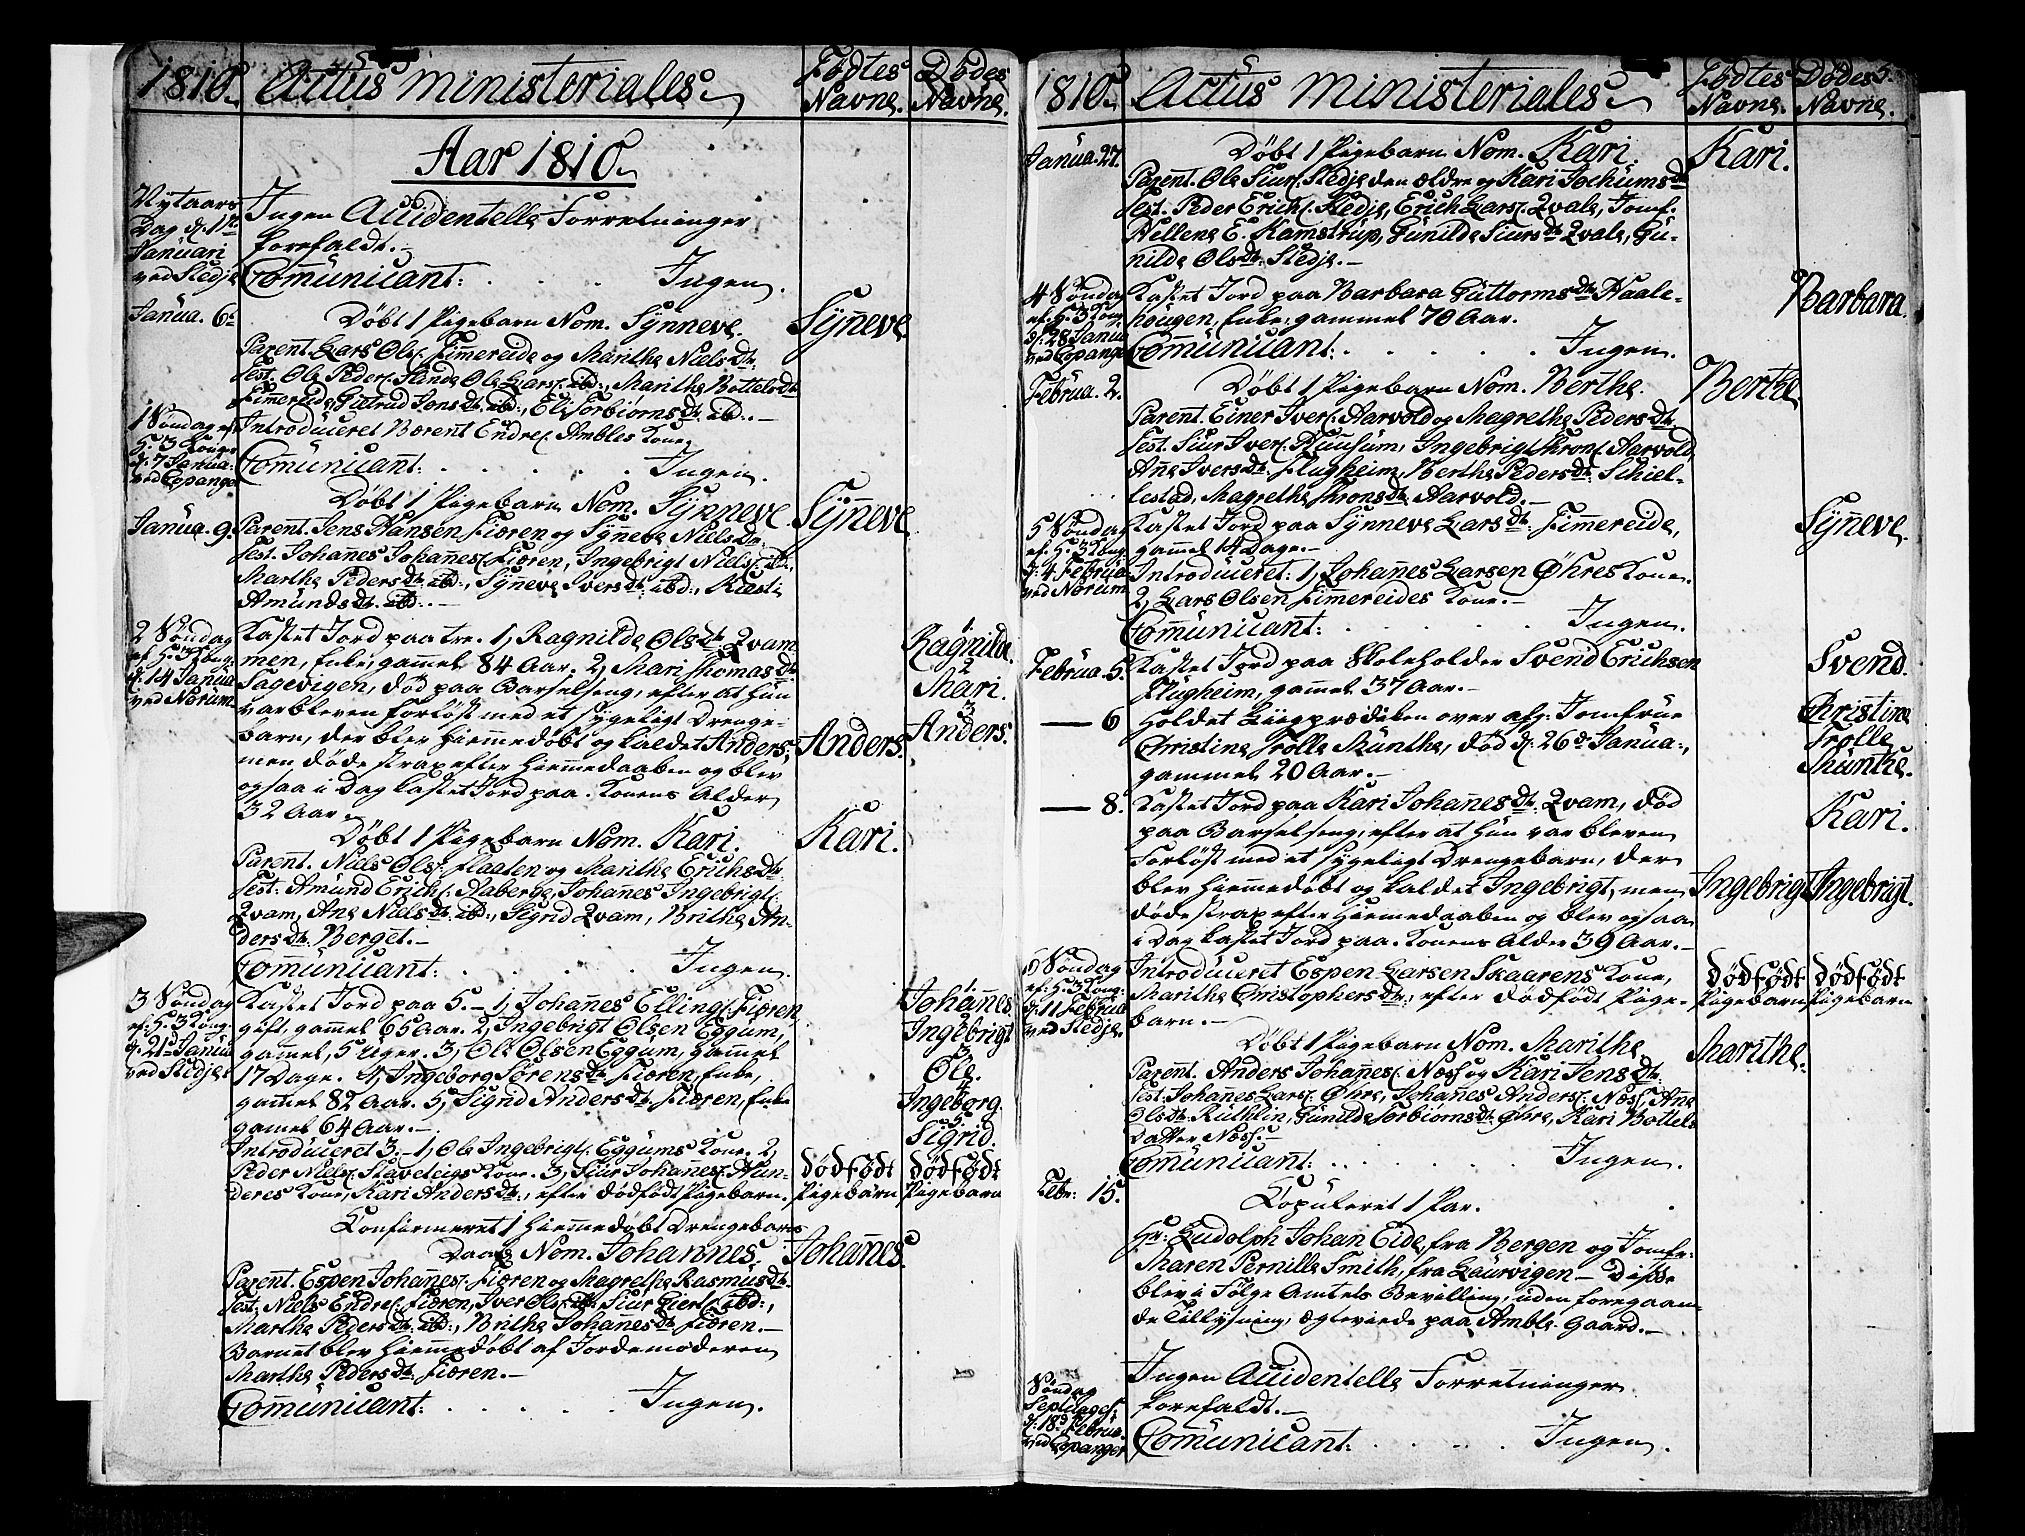 1810. Actus ministeriales.
Fødtes Navne.
Dødes Navne.
Aar 1810.
Nytaars
Dag d. 1te
Januari
ved Stedje
Ingen Accidentelle Forretninger
forefaldt.
Comunicant: . . . . Ingen.
Janua. 6.
Døbt 1 Pigebarn Nom. Synneve.
Synneve
Parent. Lars Ols. Fimereide og Marithe Nielsdtr
Test. Ole Peders. Slinde Ole Lars. ibd:, Marithe Bottelsdtr
Fimereide, Guttrud Jonsdr. ibd:, Eli Torbiørnsdr. ibd.
1 Søndag ef.
H. 3 Kong.
d. 7 Janua.
ved Copanger
Introduceret Berent Endres. Ambles Kone.
Comunicant: . . . . Ingen.
Døbt 1 Pigebarn Nom. Synneve
Synneve
Janua. 9.
Parent. Jens Hansen Fiæren og Synneve Nielsdr.
Test. Johanes Johannes. Fiæren, Ingebrigt Niels. ibd.,
Marthe Pedersdr. ibd:, Synneve Iversdr. ibd:,
Amundsdr. ibd.
2 Søndag
ef. H. 3 Kong.
d. 14 Janua
ved Norum.
Kastet Jord paa tre. 1, Ragnilde Olsdr. Qvam-
men, Enke, gammel 84 Aar. 2, Mari Thomasdr
Sagevigen, død paa Barselseng, efter at hun
var bleven forløst med et sygeligt Drenge-
barn, der blev hiemmedøbt og kaldet Anders,
men døde strax efter Hiemmedaaben og blev
ogsaa i Dag kastet Jord paa. Konens Alder
32 Aar.
Anders.
1 Ragnilde.
2 Mari.
3 Anders.
Døbt 1 Pigebarn Nom. Kari.
Kari.
Parent. Niels Ols. Flaaten og Marithe Erichsdr.
Test. Amund Erichs. Aaberge, Johannes Ingebrigt.
Qvam, Ane Nielsdr. ibd:, Sigrid Qvam, Brithe An-
dersdr. Berget.
Comunicant: . . . . Ingen.
3 Søndag
ef. H. 3 Kong.
d. 21 Janua
ved Stedje
Kastet Jord paa 5. 1, Johannes Ellings. Fiæren
gift, gammel 65 Aar. 2, Ingebrigt Olsen Eggum,
gammel, 5 Uger. 3, Ole Olsen Eggum, gammel
17 Dage. 4, Ingeborg Sørensdr. Fiæren, Enke,
gammel 82 Aar. 5, Sigrid Andersdr. Fiæren, Enke
gamel 64 Aar.
1 Johannes
Ingebrigt
3 Ole.
4 Ingeborg.
Sigrid.
Introduceret 3. 1, Ole Ingebrigts. Eggums Kone. 2,
Peder Niels. Kone. 3, Siur Johannes. Hun-
deres Kone, Kari Andersdr., efter dødfødt Pigebarn.
dødfødt Pigebarn
dødfødt Pigebarn
Confirmeret 1 hiemmedøbt Drengebarns
Daab Nom. Johannes.
Johannes.
Parent. Espen Johannes. Fiæren og Magrethe Rasmusdr.
Test. Niels Endres. Fiæren, Iver Ols. ibd. Siur Giert. ibd:,
Marthe Pedersdr. ibd:, Brithe Johanesdr. Fiæren.
Barnet blev hiemmedøbt af Jordemoderen
Marthe Pedersdr. Fiæren.
Comunicant: . . . . Ingen.
1810. Actus ministeriales.
Fødtes Navne.
Dødes Navne.
5.
Janua. 27.
Døbt 1 Pigebarn Nom. Kari.
Kari.
Parent. Ole Siurs. Stedje den ældre og Kari Jochumsdr
Test. Peder Erichs. Stedje, Erich Lars. Qvale, Jomf.
Hellene E. Kamstrup, Gunilde Siursdr. Qvale, Gu-
nilde Olsdr. Stedje.
4 Søndag
ef. H. 3 Kong.
d. 28 Janua
ved Copanger
Kastet Jord paa Barbara Guttormsdr. Haale-
hougen, Enke, gammel 70 Aar.
Barbara.
Comunicant: . . . . Ingen.
Februa. 2.
Døbt 1 Pigebarn Nom. Berthe.
Berthe
Parent. Einer Ivers. Aarvold og Magrethe Pedersdr.
Test. Siur Ivers. Huusum, Ingebrigt Throns. Aarvold,
Ane Iversdr. Flugheim, Berthe Pedersdr. Schiel-
lestad, Magrethe Thronsdr. Aarvold.
5 Søndag
ef. H. 3 Kong.
d. 4 Februa.
ved Norum.
Kastet Jord paa Synneve Larsdr. Fimmereide,
gammel 14 Dage.
Synneve.
Introduceret: 1, Johannes Larsen Øhres Kone.
2, Lars Olsen Fimmereides Kone.
Comunicant: . . . . Ingen.
Februa. 5.
Kastet Jord paa Skoleholder Svend Erichsen
Flugheim, gammel 37 Aar.
Svend.
— 6
Holdet Liigprædiken over afg: Jomfrue
Christine Trolle Münthe, død d. 26de Janua.,
gammel 20 Aar.
Christine
Trolle
Münthe.
— 8.
Kastet Jord paa Kari Johannesdr. Qvam, død
paa Barselseng, efter at hun var bleven
forløst med et sygeligt Drengebarn, der
blev hiemmedøbt og kaldet Ingebrigt, men
døde strax efter Hiemmedaaben og blev ogsaa
i Dag kastet Jord paa. Konens Alder 39 Aar.
Kari.
Ingebrigt
Ingebrigt.
6 Søndag
ef. H. 3 Kong.
d. 11 Februa
ved Stedje.
Introduceret Espen Larsen Skaarens Kone,
Marithe Christophersdr., efter dødfødt Pige-
barn.
dødfødt Pigebarn
dødfødt Pigebarn
Døbt 1 Pigebarn Nom. Marithe
Marithe.
Parent. Anders Johannes. Næss og Kari Jensdr.
Test. Johannes Lars. Øhre, Johannes Anders. Næss, Ane
Olsdr. Ruthlin, Gunilde Torbiørnsdr. Øhre, Kari Bottels
Datter Næss.
Comunicant: . . . . Ingen.
Febr: 15.
Copuleret 1 Par.
Hr. Ludolph Johan Eide, fra Bergen og Jomfr.
Maren Pernille Smith, fra Laurvigen — Disse
blev i Følge Amtets Bevilling, uden foregaaen-
de Tillysning, ægteviede paa Amble Gaard.
Søndag
Septuages.
d. 18de Februa.
ved Copanger
Ingen Accidentelle Forretninger
forefaldt.
Comunicant: . . . . Ingen.